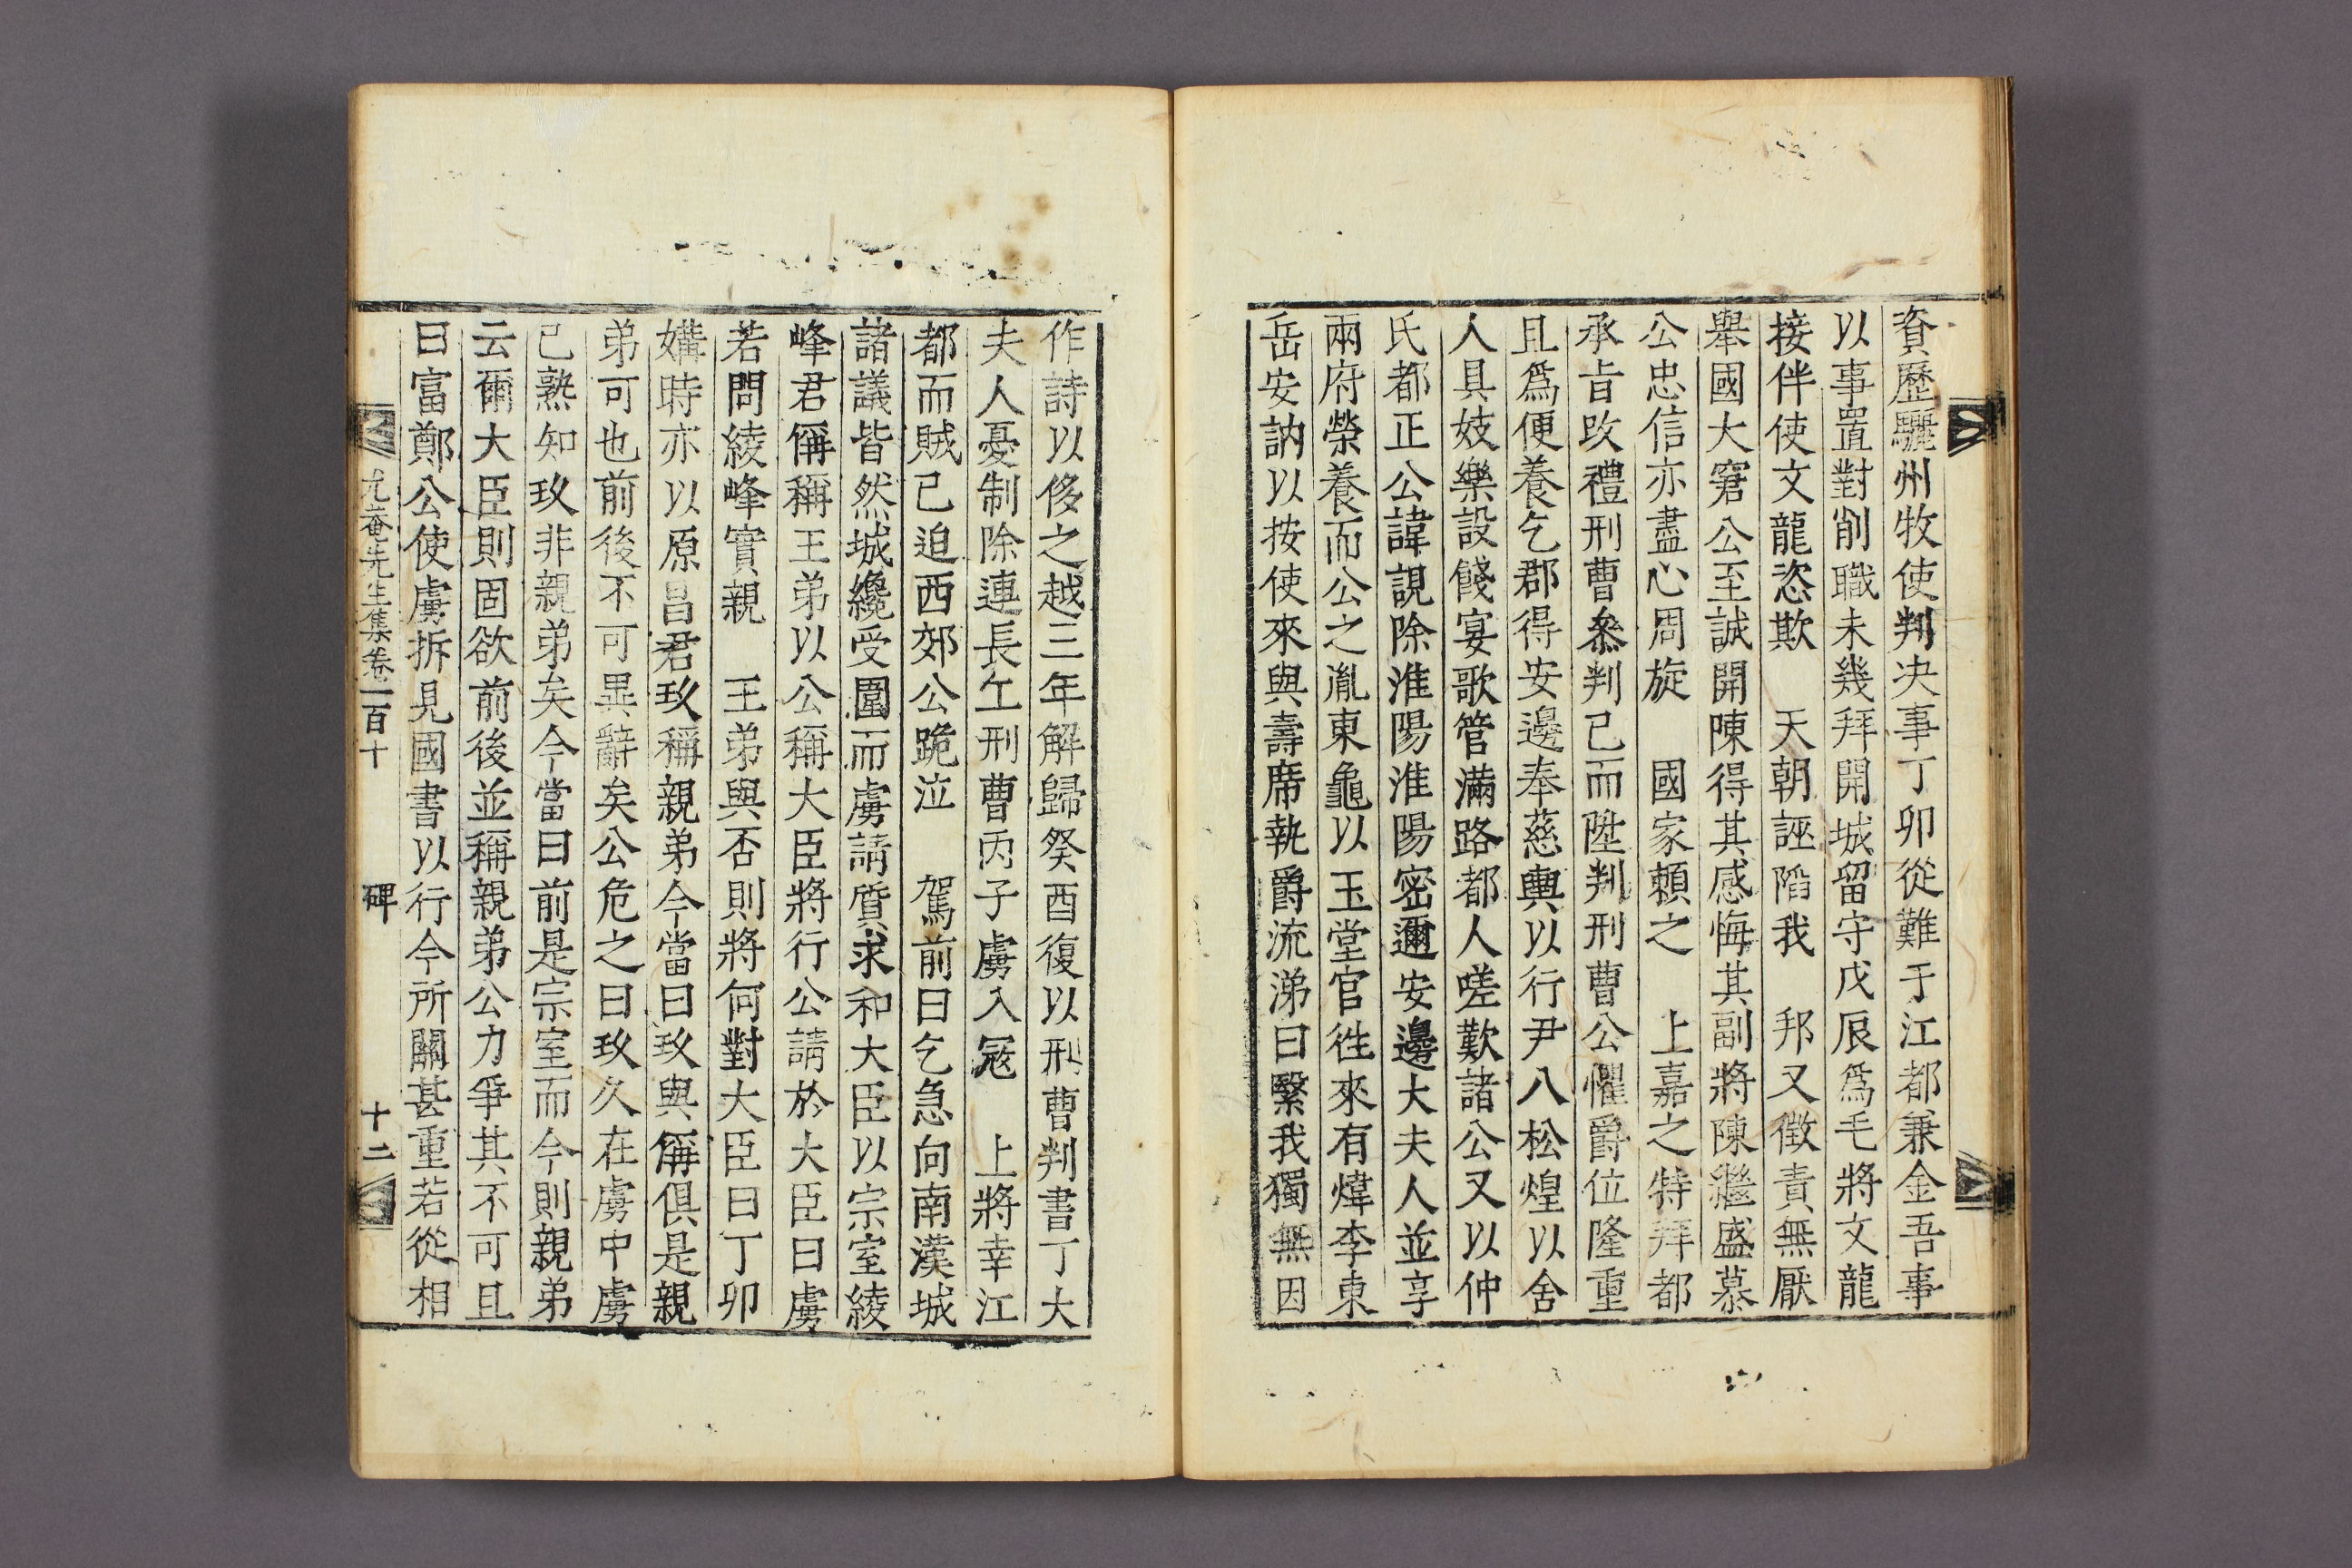 資歷驪州牧使判决事丁卯從難于江都兼金吾事
以事置對削職未幾拜開城留守戊辰爲毛將文龍
接伴使文龍恣欺　天朝誣陷我　邦又徵責無厭
舉國大窘公至誠開陳得其感悔其副將陳繼盛慕
公忠信亦盡心周旋　國家賴之　上嘉之特拜都
承旨改禮刑曹叅判已而陞判刑曹公懼爵位隆重
且爲便養乞郡得安邊奉慈輿以行尹八松煌以舍
人具妓樂設餞宴歌管滿路都人嗟歎諸公又以仲
氏都正公諱說除淮陽淮陽密邇安邊大夫人並享
兩府榮養而公之胤東龜以玉堂官徃來有煒李東
岳安訥以按使來與壽席執爵流涕曰繄我獨無因
作詩以侈之越三年解歸癸酉復以刑曹判書丁大
夫人憂制除連長工刑曹丙子虜入冦　上將幸江
都而賊已迫西郊公跪泣　駕前曰乞急向南漢城
諸議皆然城纔受圍而虜請質求和大臣以宗室綾
峰君偁稱王弟以公稱大臣將行公請於大臣曰虜
若問綾峰實親　王弟與否則將何對大臣曰丁卯
媾時亦以原昌君玖稱親弟今當曰玖與偁俱是親
弟可也前後不可異辭矣公危之曰玖久在虜中虜
已熟知玖非親弟矣今當曰前是宗室而今則親弟
云爾大臣則固欲前後並稱親弟公力爭其不可且
曰富鄭公使虜拆見國書以行今所關甚重若從相
尤菴先生集卷一百十　碑　十二